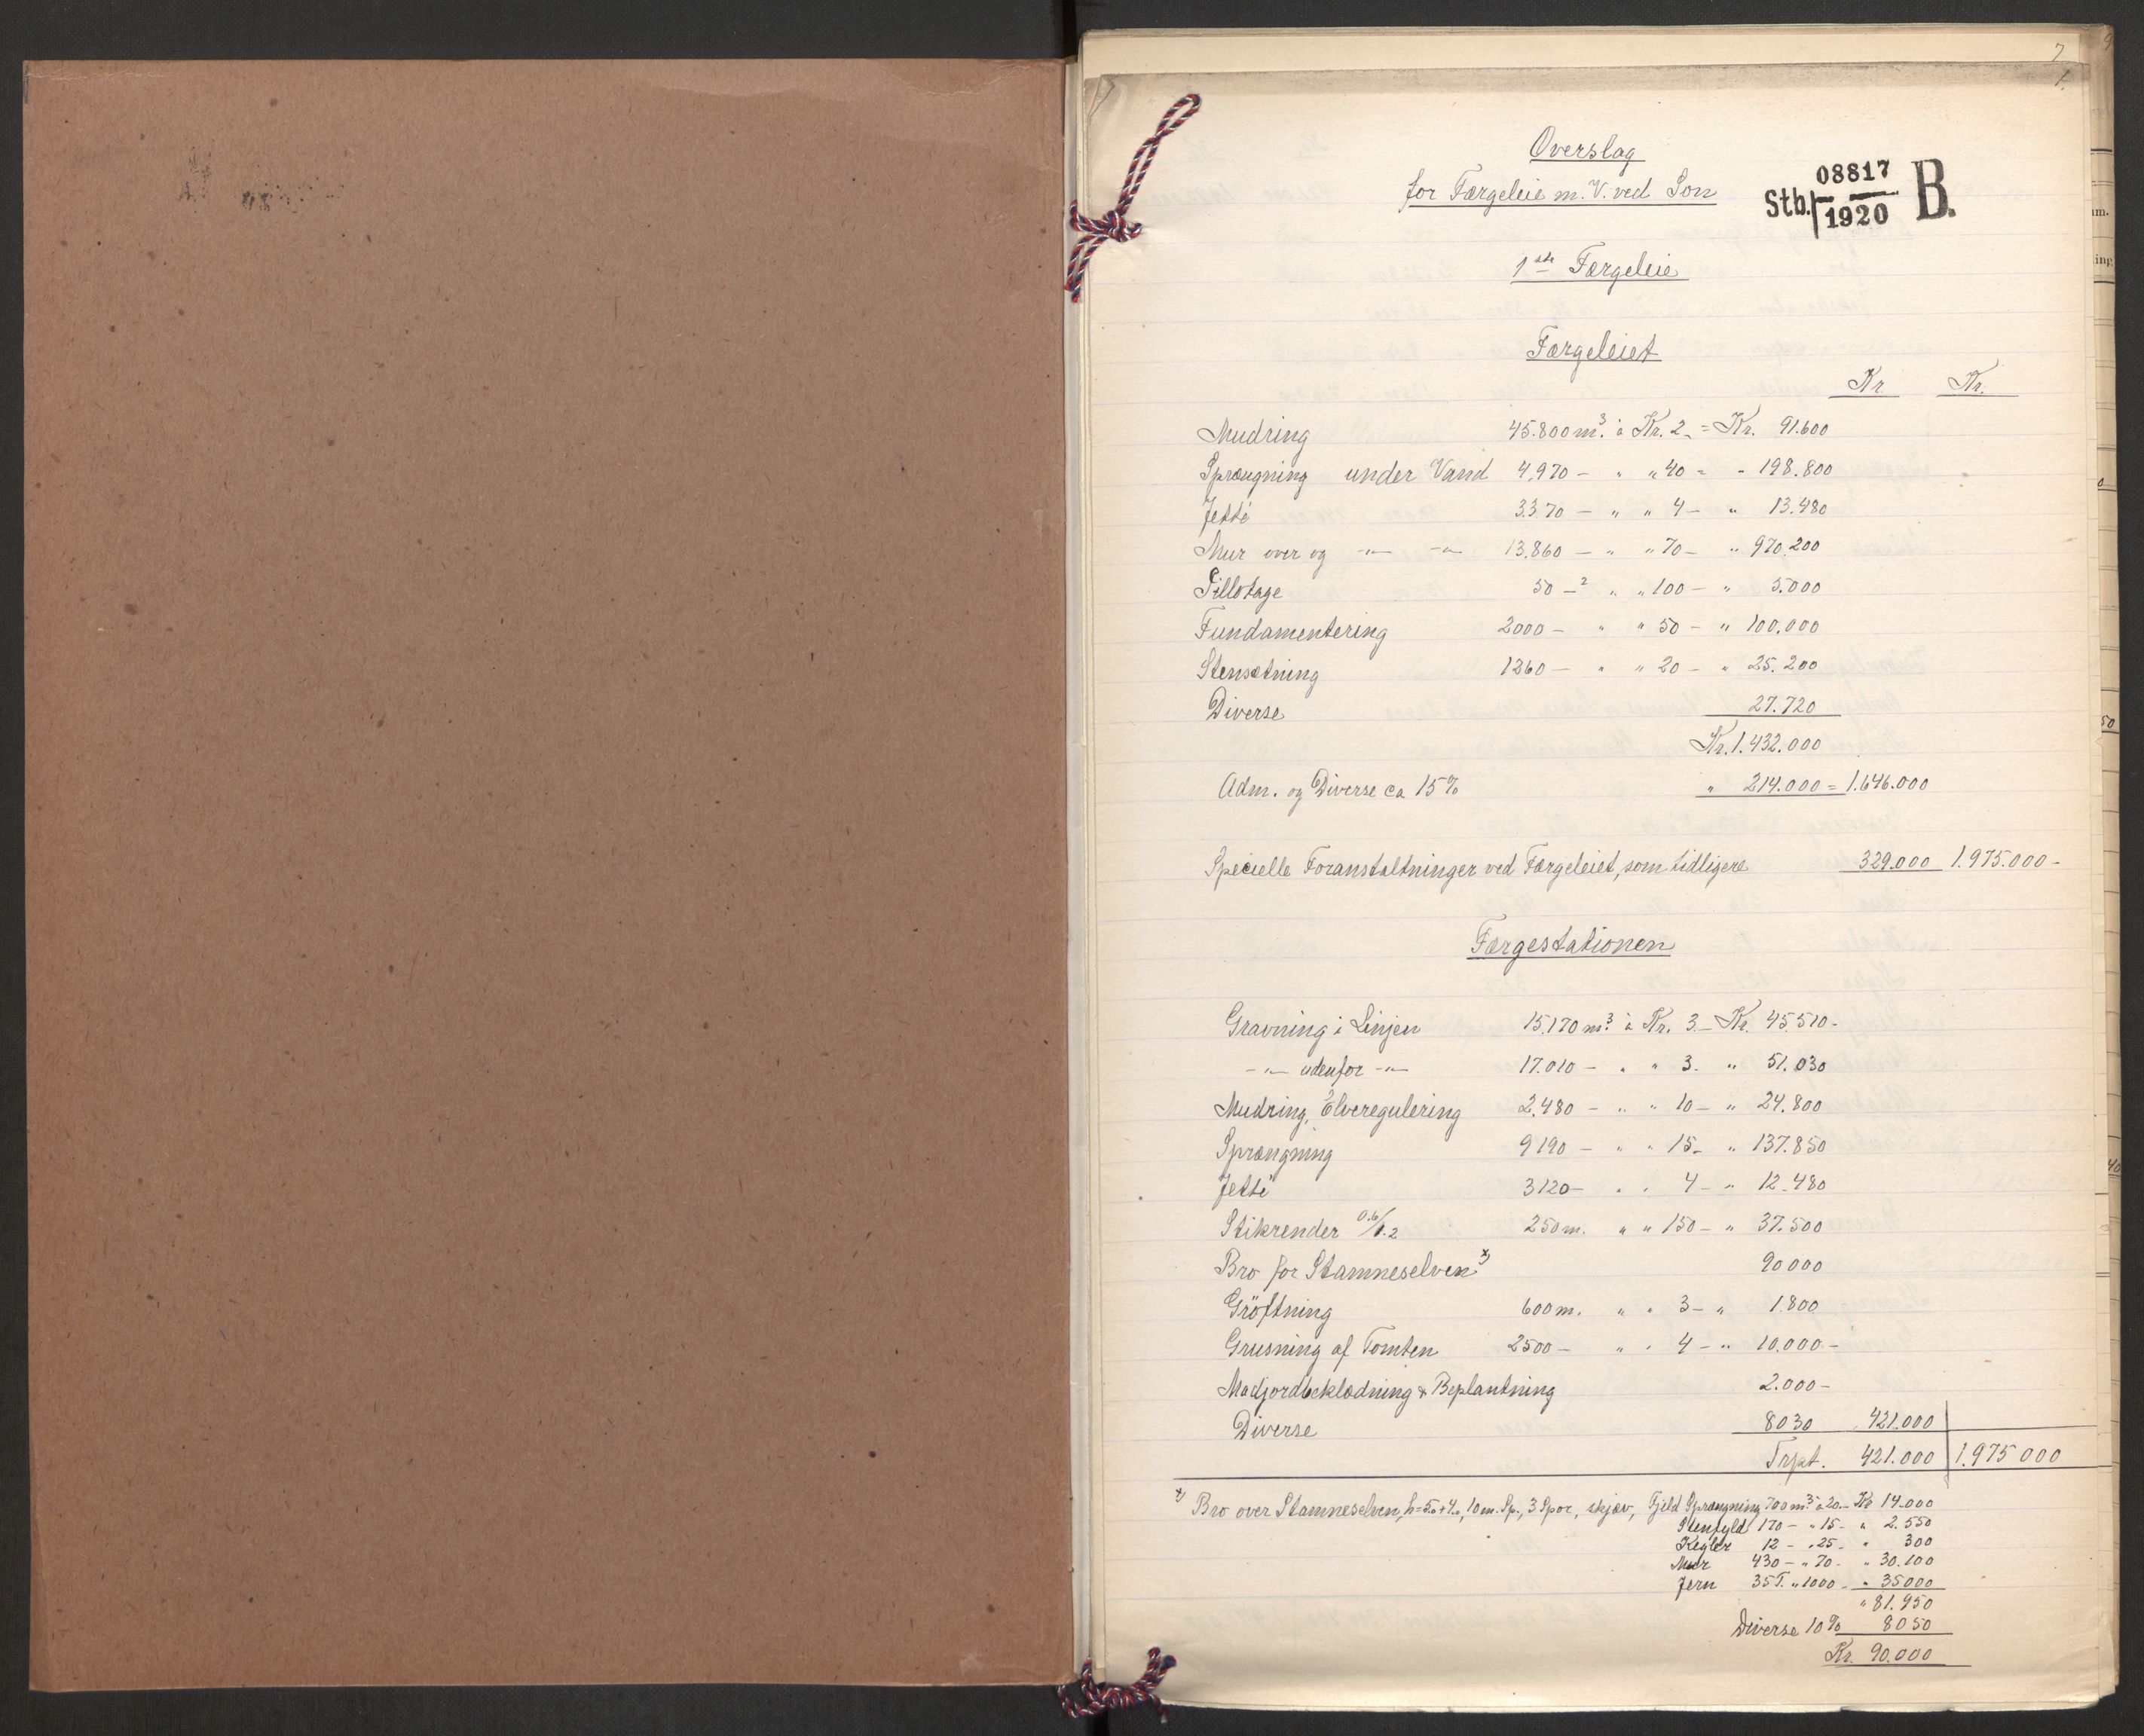 7
1.
Overslag
for Færgeleie m. V. ved Son
08817
Stb. 1920 B.
1ste Færgeleie
Færgeleiet
Kr. Kr.
Mudring 45.800 m³. à Kr. 2.- = Kr. 91.600
Sprængning under Vand 4.970 - " " 40 - " 198.800
Jetté 3370 - " " 4 - " 13.480
Mur over og -"- -"- 13.860 - " " 70 - " 970.200
Pillotage 50 -² " " 100 - " 5.000
Fundamentering 2000 - " " 50 - " 100.000
Stensætning 1260 - " " 20 - " 25.200
Diverse 27.720
Kr. 1.432.000
Adm. og Diverse ca 15% " 214.000 = 1.646.000
Specielle Foranstaltninger ved Færgeleiet, som tidligere 329.000 1.975.000-
Færgestationen
Gravning i Linjen 15.170 m³. à Kr. 3.- Kr. 45.510-
-"- udenfor -"- 17.010 - " " 3. " 51.030
Mudring, Elveregulering 2.480 - " " 10 - " 24.800
Sprængning 9190 - " " 15 - " 137.850
Jetté 3120 - " " 4 - " 12.480
Stikrender 0.6/1.2 250 m. " " 150 - " 37.500
Bro for Stamneselven x) 90000
Gröftning 600 m. " " 3 - " 1.800
Grusning af Tomten 2500 - " " 4 - " 10.000-
Madjordbeklædning & Beplantning 2.000-
Diverse 8030 421.000
Trpt. 421.000 1.975 000
x) Bro over Stamneselven, h=5.0+4.0, 10 m. Sp., 3 Spor, skjæv, Fjeld Sprængning 700 m³ à 20.- Kr 14.000
Stenfyld 170 - " 15 - " 2.550
Kegler 12 - " 25 - " 300
Mur 430 - " 70 - " 30.100
Jern 35 T. " 1000 - " 35000
" 81.950
Diverse 10% 8050
Kr. 90.000